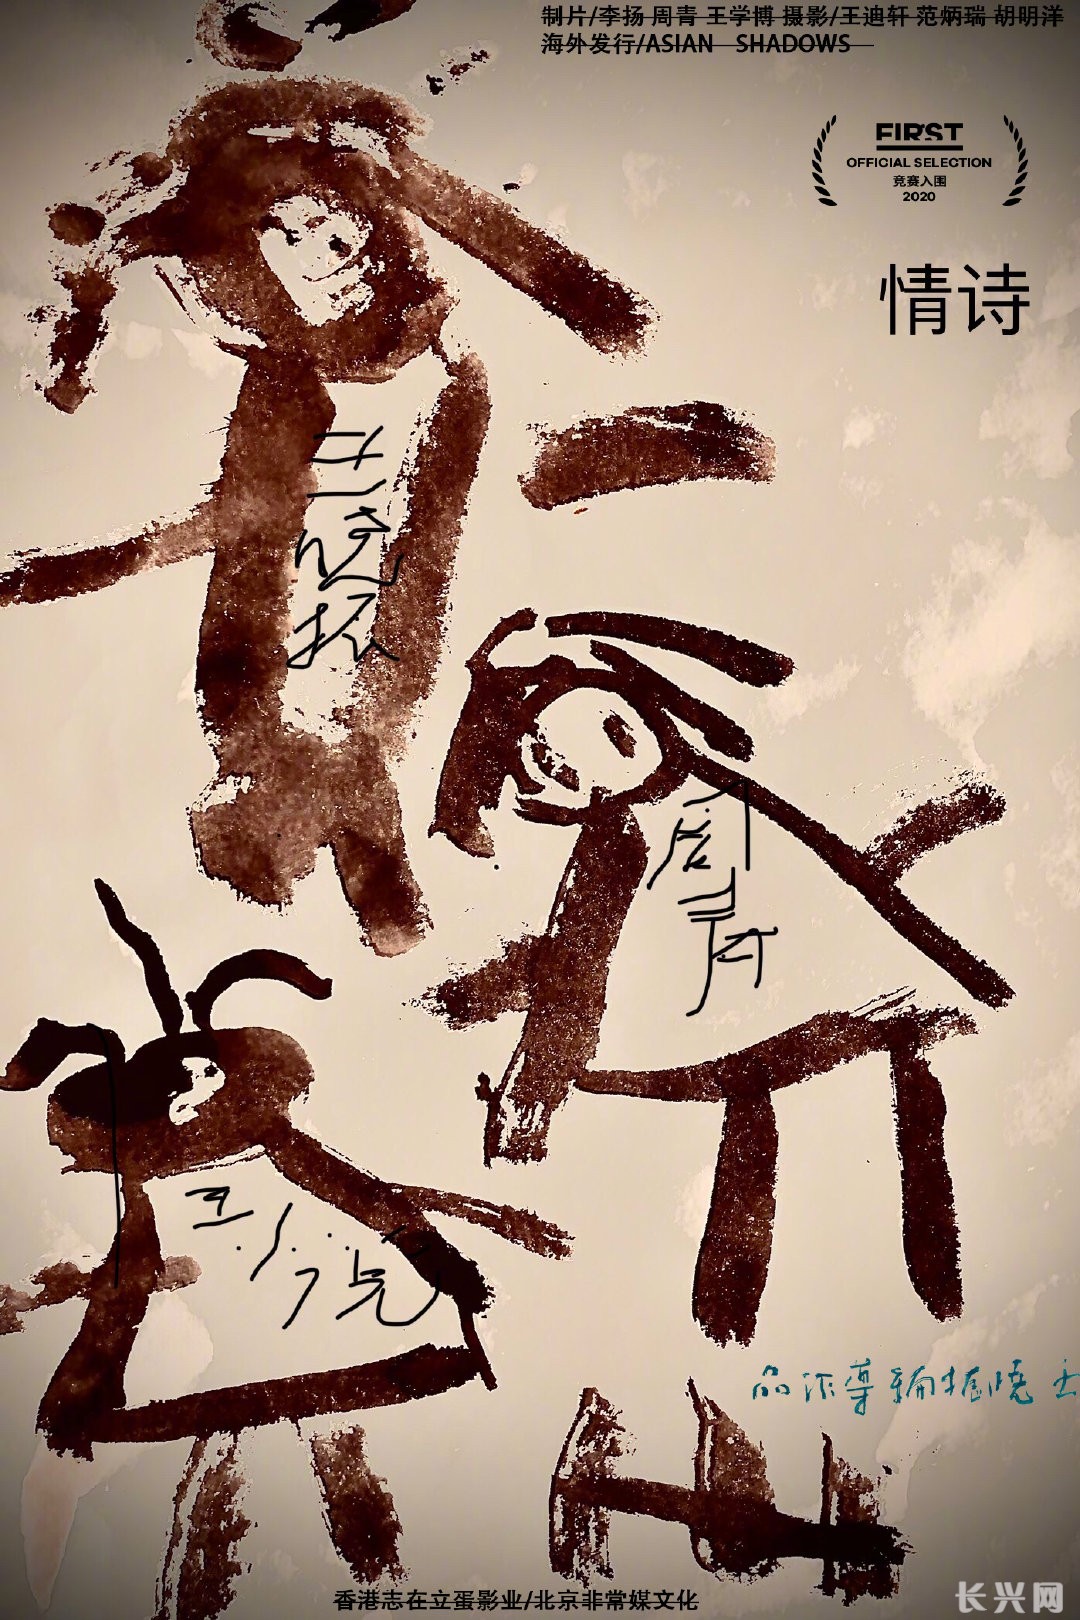 制片/李扬 周青 王学博 摄影/王迪轩 范炳瑞 胡明洋
海外发行/ASIAN SHADOWS
FIRST
OFFICIAL SELECTION
竞赛入围
2020
情诗
王晓振
周青
品作导编振晓王
香港志在立蛋影业/北京非常媒文化
长兴网